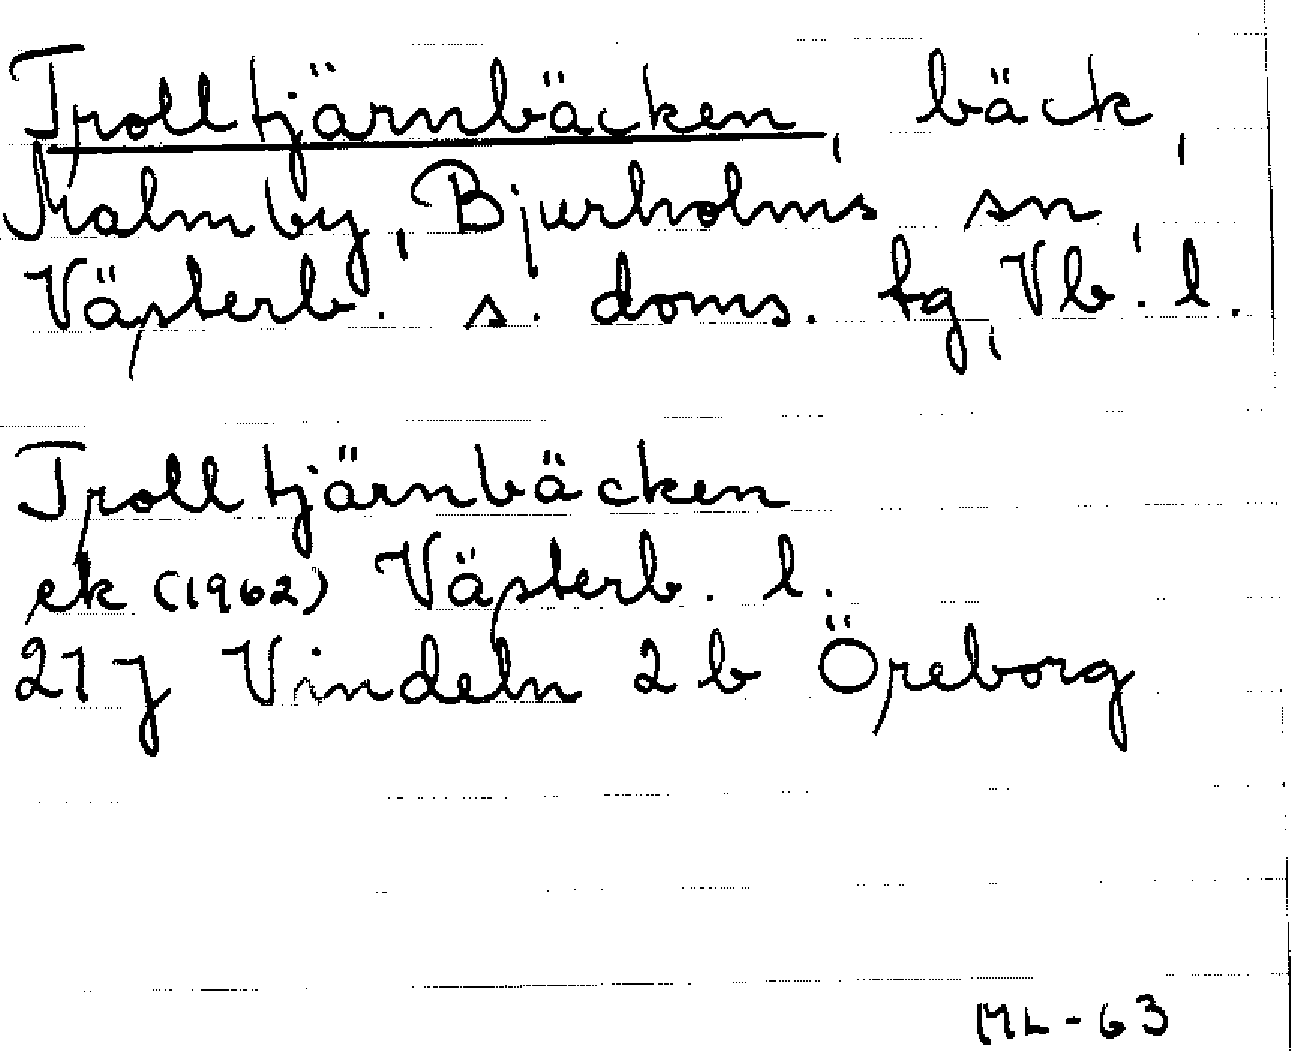 Trolltjärnbäcken, bäck,
Malmby, Bjurholms sn,
Västerb. s. doms. tg, Vb. l.
Trolltjärnbäcken
ek (1962) Västerb. l.
21 J Vindeln 2 b Öreborg
ML-63